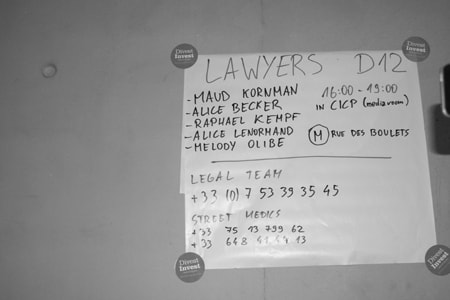 Divest
Invest
Divest
Invest
LAWYERS D12
- MAUD KORNMAN 16:00 - 19:00
- ALICE BECKER IN CICP (media room)
- RAPHAEL KEMPF
- ALICE LENORMAND M RUE DES BOULETS
- MELODY OLIBE
LEGAL TEAM
+33 (0) 7 53 39 35 45
STREET MEDICS
+33 75 13 799 62
+33 648
Divest
Invest
Divest
Invest